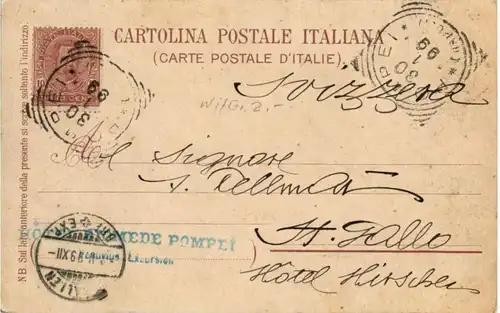 CARTOLINA POSTALE ITALIANA
(CARTE POSTALE D'ITALIE)
NB. Sul lato anteriore della presente si scrive soltanto l'indirizzo.
30
1
99
POMPEI
30
1
99
Svizzera
Al Signore
S. Kellman
St. Gallo
Hôtel Hirschen
DIOMEDE POMPEI
Vesuvius Excursion
BRF. EXP.
XII